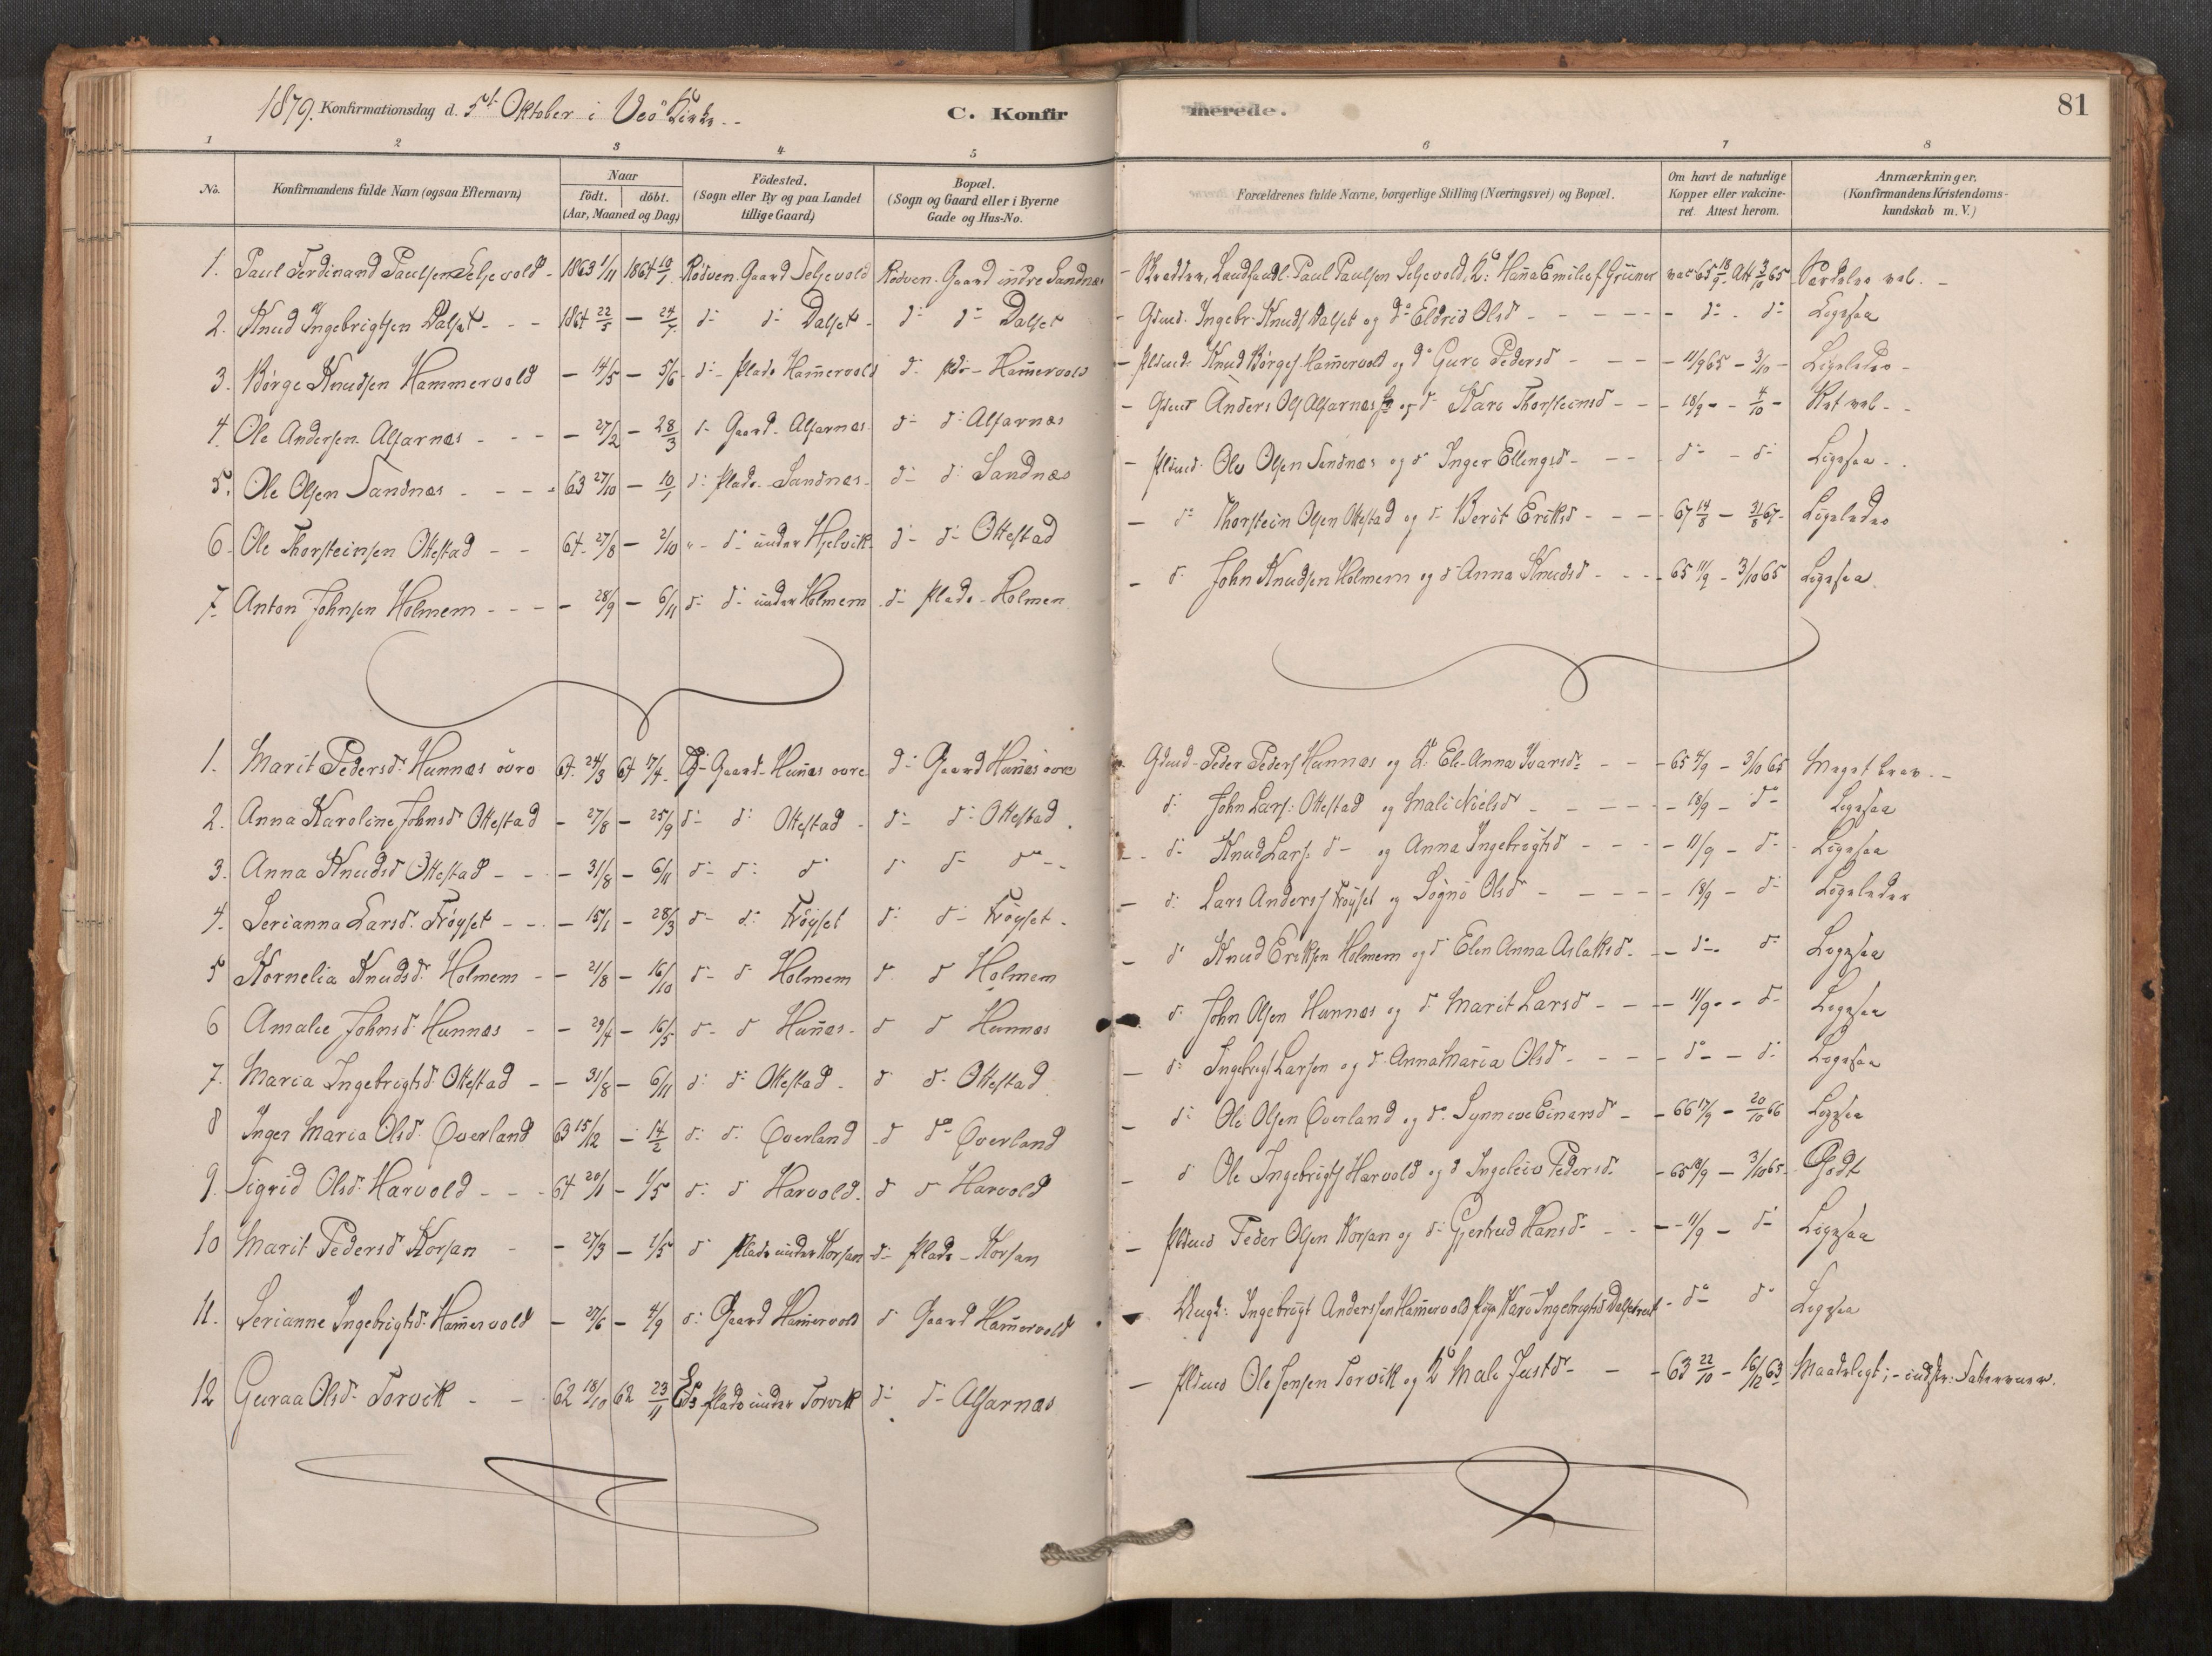 1879. Konfirmationsdag d. 5t Oktober i Veö Kirke.
C. Konfirmerede.
81
1 2 3 4 5 6 7 8
No. Konfirmandens fulde Navn (ogsaa Efternavn) Naar födt. döbt. (Aar, Maaned og Dag) Födested. (Sogn eller By og paa Landet tillige Gaard) Bopæl. (Sogn og Gaard eller i Byerne Gade og Hus-No. Forældrenes fulde Navne, borgerlige Stilling (Næringsvei) og Bopæl. Om havt de naturlige Kopper eller vakcineret. Attest herom. Anmærkninger. (Konfirmandens Kristendomskundskab m. V.)
1. Paul Ferdinand Paulsen Seljevold - 1863 1/11 1864 10/1 Rödven Gaard Seljevold Rödven Gaard indre Sandnæs - Landhandl. Paul Paulsen Seljevold, K: Hanna Emilie f. Grüner vac 65 18/9 Att 3/10 65 Særdeles vel. -
2. Knud Ingebrigtsen Dalset - - - 1864 22/5 - 24/7 do do Dalset - do do Dalset - Gdmd. Ingebr. Knuds Dalset og do Eldrid Olsd - - - - - do - do Ligesaa
3. Börge Knudsen Hammervold - 14/5 - 5/6 do - Plads Hammervold do Pds - Hammervold - Pldmd: Knud Börges Hammervold og do Guro Pedersd - - - 11/9 65 - 3/10 - Ligeledes -
4. Ole Andersen Alfarnæs - - - - 27/2 - 28/3 do Gaard Alfarnæs do do Alfarnæs - Gdmd Anders Ols Alfarnæs og do Kare Thorsteinsd - - - 18/9 - - 4/10 - Ret vel - -
5. Ole Olsen Sandnæs - - - - 63 27/10 - 10/1 do Plads Sandnæs - do do Sandnæs - Pldmd. Ole Olsen Sandnæs og do Inger Ellingsd - - - do - do Ligesaa - .
6. Ole Thorsteinsen Ottestad - - 64 27/8 - 2/10 " - do under Hjelvik do - do Ottestad - do Thorstein Olsen Ottestad og do Berit Eriksd - - - 67 14/8 - 31/8 67 - Ligeledes
7. Anton Johnsen Holmem - - - - 28/9 - 6/11 do do under Holmem do Plads - Holmen - do John Knudsen Holmem og do Anna Knudsd - - - 65 11/9 - 3/10 65 Ligesaa.
1. Marit Pedersd. Hunnæs övre 64 24/3 64 17/4 do Gaard - Hunnæs övre do Gaard Hunnæs övre Gdmd - Peder Peders Hunnæs og K. Ele-Anna Ivarsd - - 65 4/9 - 3/10 65 Meget brav. -
2. Anna Karoline Johnsd Ottestad - 27/8 - 25/9 do do Ottestad - do do Ottestad do John Lars: Ottestad og Mali Nielsd - - - - - 18/9 - do - Ligesaa
3. Anna Knudsd Ottestad - - - 31/8 - 6/11 do do do do do do - - - do Knud Lars. do - og Anna Ingebrigtsd - - - - 11/9 - do - Ligesaa
4. Serianna Larsd. Fröyset - - - 15/1 - 28/3 do do Fröyset do do Fröyset - - do Lars Anders Fröyset og Signo Olsd - - - - - 18/9 - do Ligeledes
5 Kornelia Knudsd. Holmem - - 21/8 - 16/10 do - do Holmem do do Holmem - do Knud Eriksen Holmem og do Elen Anna Aslaksd - - do - do Ligesaa
6 Amalie Johnsd. Hunnæs - - 29/4 - 16/5 do - do Hunnæs - do do Hunnæs do John Olsen Hunnæs og do Marit Larsd - - - 11/9 - - do - Ligesaa
7. Maria Ingebrigtsd. Ottestad - - 31/8 - 6/11 do do Ottestad - do do Ottestad - do Ingebrigt Larsen og do Anna Maria Olsd - - - - do - - do Ligesaa
8 Inger Maria Olsd. Överland 63 15/12 - 14/2 do do Överland do do Överland - do Ole Olsen Överland og do Synneve Einarsd - - 66 17/9 - 20/10 66 Ligesaa
9. Sigrid Olsd. Harvold - - - 64 20/1 - 1/5 do do Harvold do do Harvold - do Ole Ingebrigts Harvold og do Ingeleiv Pedersd - 65 18/9 - 3/10 65 - Godt
10 Marit Pedersd Korsan - - 27/3 - 1/5 do Plads under Korsan do Plads - Korsan - Pldmd Peder Olsen Korsan og do Gjertrud Hansd - - - 11/9 - do Ligesaa
11. Serianne Ingebrigtsd. Hammervold - 27/6 - 4/9 do Gaard Hammervold do Gaard Hammervold - Ungk: Ingebrigt Anderssen Hammervold Pige Kari Ingebrigtsd Dalset - do do Ligesaa
12 Guraa Olsd. Torvik - - 62 18/10 62 23/11 Eds Plads under Torvik do do Alfarnæs - Pldmd Ole Jensen Torvik og K Mali Justd - - - 63 22/10 - 16/12 63 Maadeligt; -